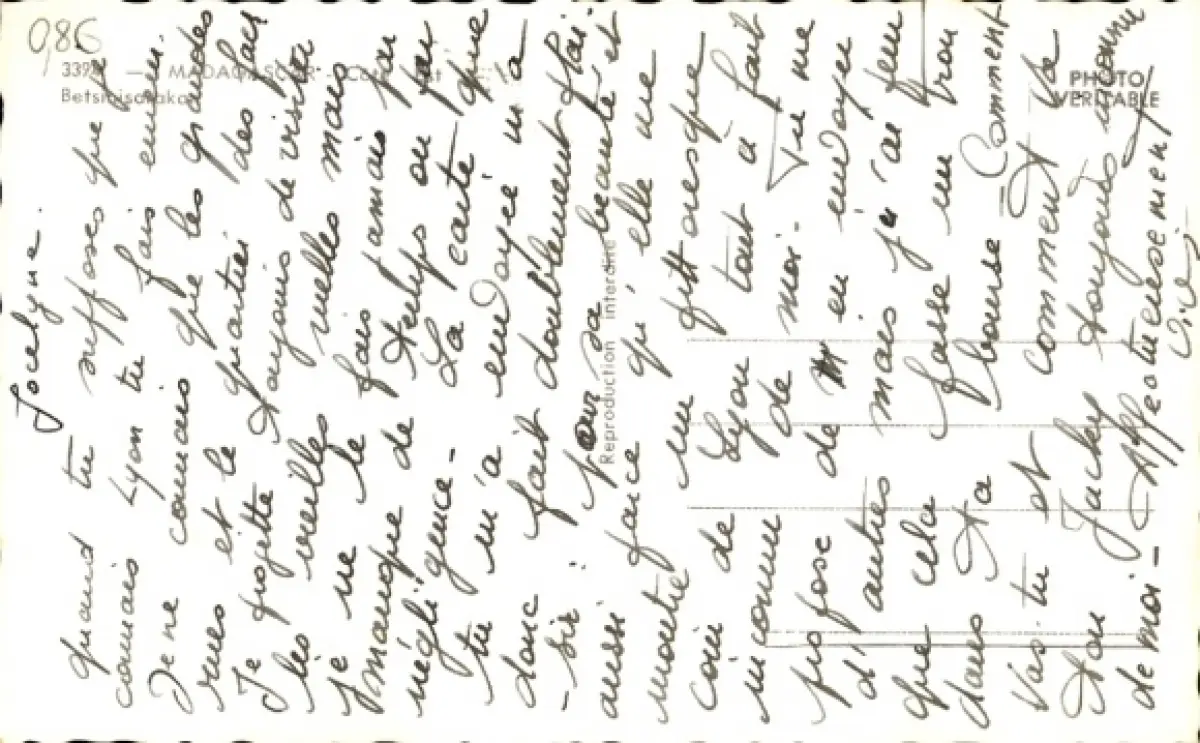 086
MADAGASCAR - Côte Est
Betsimisaraka
PHOTO
VERITABLE
Reproduction interdite
Jocelyne.
quand tu supposes que je
connais Lyon tu fais erreur.
Je ne connais que les grandes
rues et le quartier des fac
Je projette toujours de visiter
les vieilles ruelles mais
je ne le fais jamais par
manque de temps ou par
négligence - La carte que
tu m'a envoyée m'a
donc fait doublement plai-
- sir : pour sa beauté et
aussi parce qu'elle me
montre un pittoresque
coin de Lyon tout à fait
inconnu de moi - Tu me
propose de m'en envoyer
d'autres mais j'ai peur
que cela fasse un trou
dans ta bourse - Comment
vas-tu et comment va
ton Jacky toujours
de moi - Affectueusement